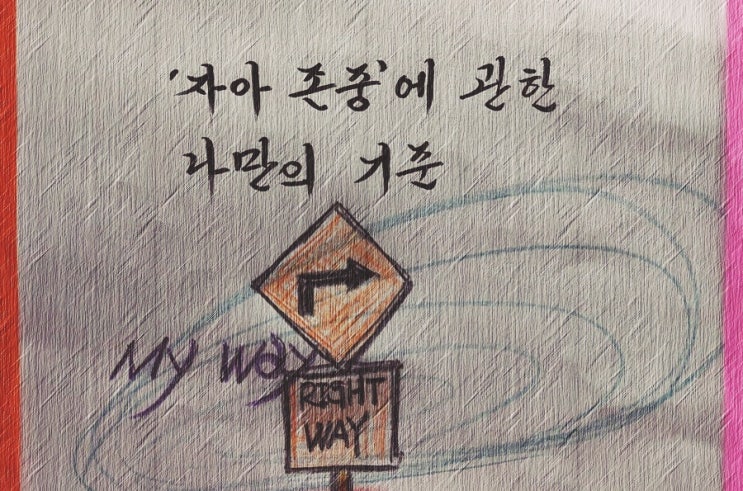 '자아 존중'에 관한
나만의 기준
My way
RIGHT
WAY